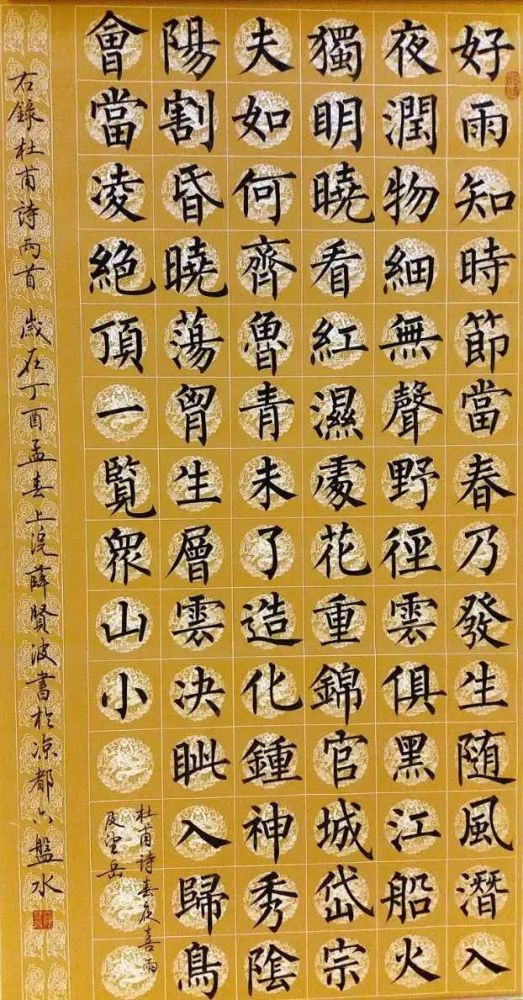 好雨知時節當春乃發生随風潛入
夜潤物細無聲野徑雲俱黑江船火
獨明曉看紅濕處花重錦官城岱宗
夫如何齊魯青未了造化鍾神秀陰
陽割昏曉蕩胷生層雲決眦入歸鳥
會當凌絕頂一覽眾山小
杜甫詩春夜喜雨
及望岳
右錄杜甫詩兩首 歲在丁酉孟春上浣薛賢波書於凉都六盤水